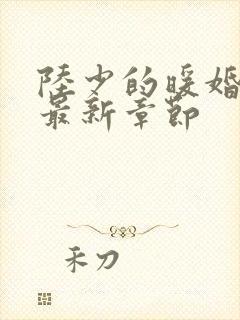 陸少的暖婚
最新章節
禾刀